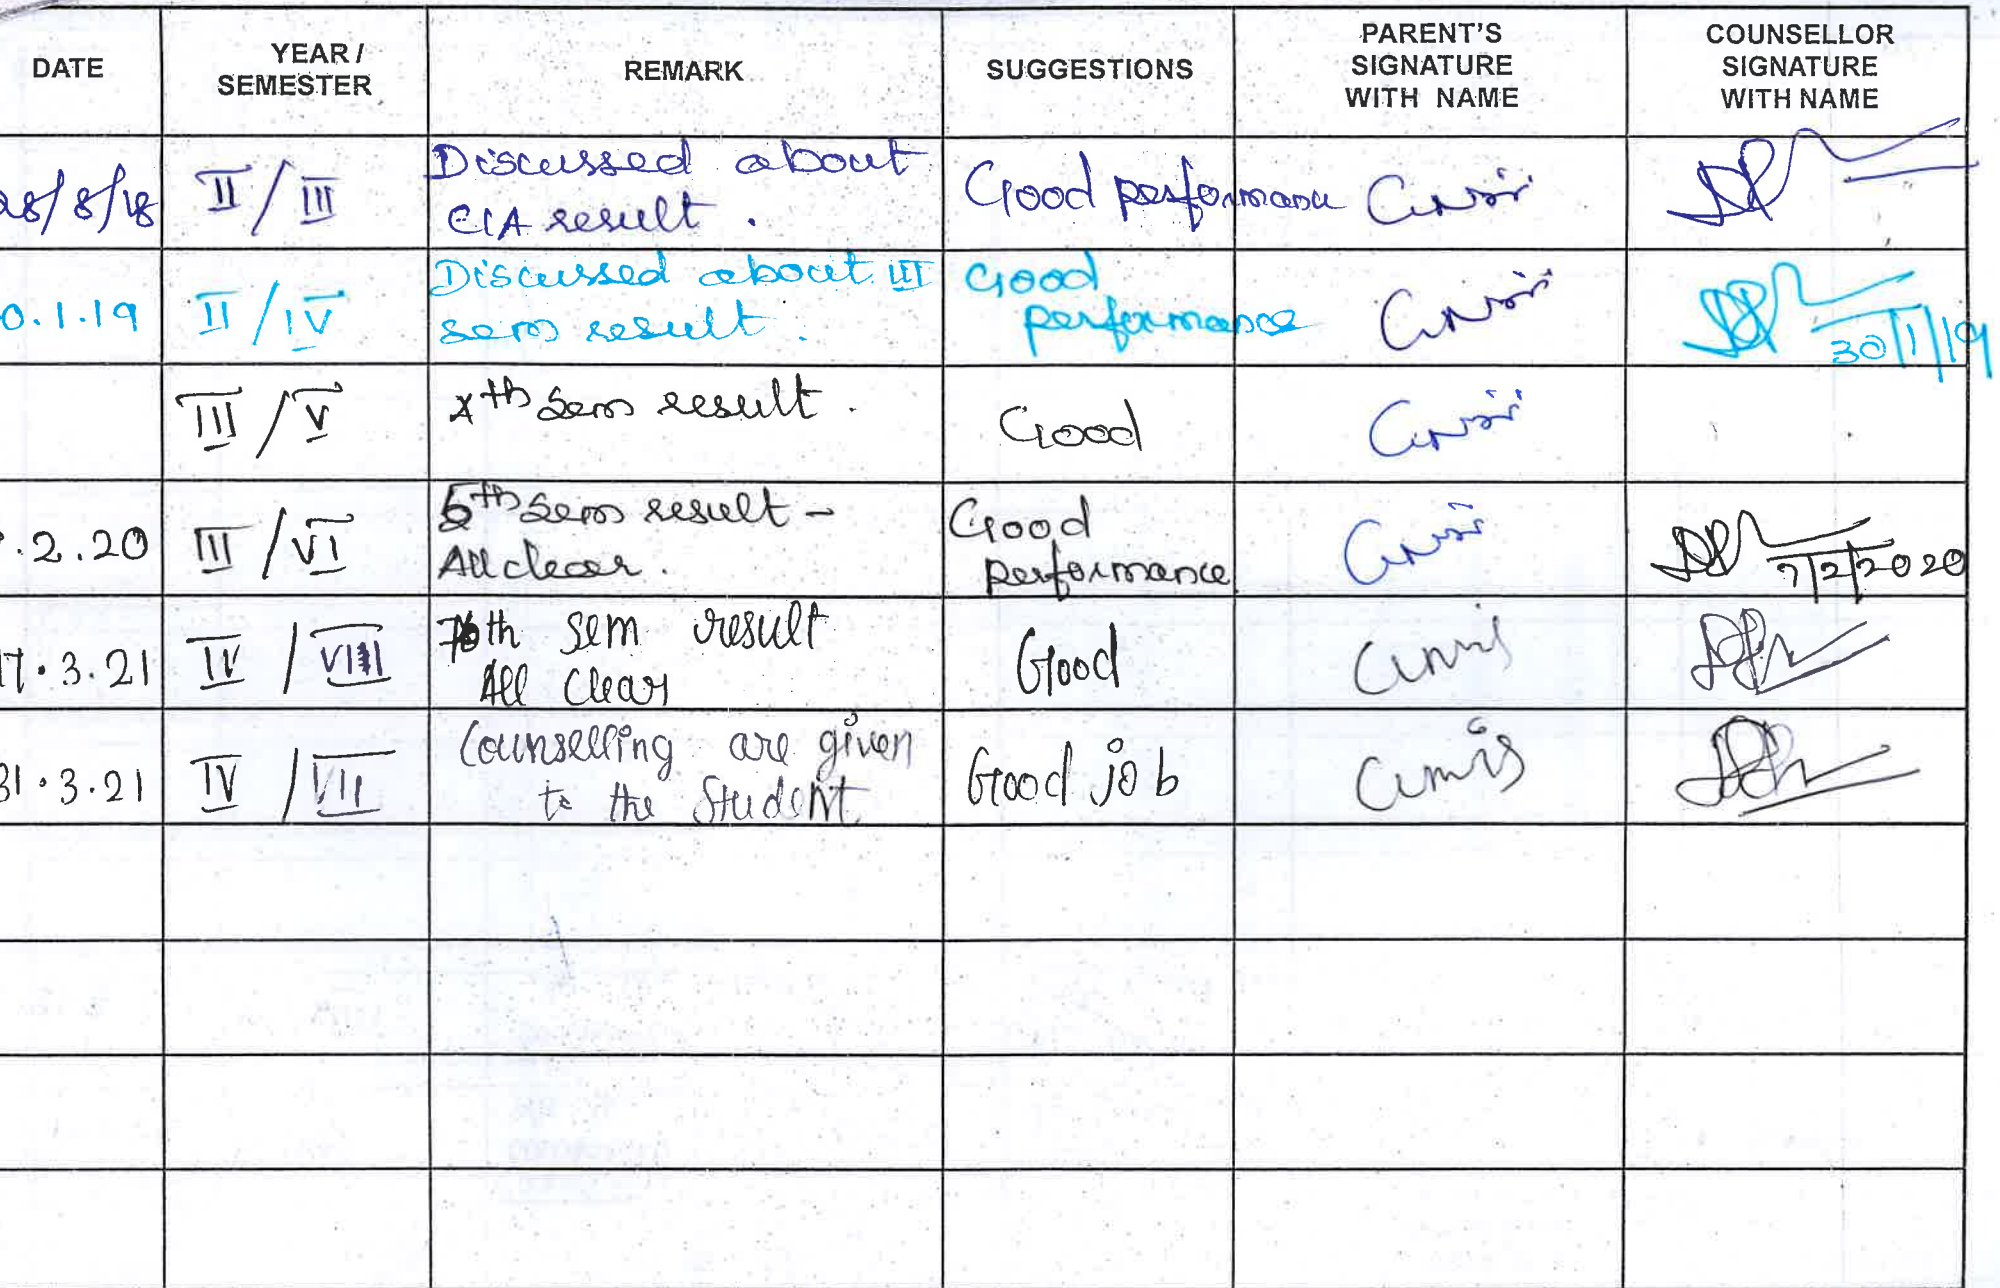 DATE
YEAR /
SEMESTER
REMARK
SUGGESTIONS
PARENT'S
SIGNATURE
WITH NAME
COUNSELLOR
SIGNATURE
WITH NAME
28/8/18
II / III
Discussed about
CIA result .
Good performance
0.1.19
II / IV
Discussed about III
sem result .
Good
performance
30/1/19
III / V
th Sem result .
Good
.2.20
III / VI
5th Sem result -
All clear .
Good
performance
7/2/2020
17.3.21
IV / VIII
th sem result
All Clear
Good
31.3.21
IV / VII
Counselling are given
to the Student
Good job